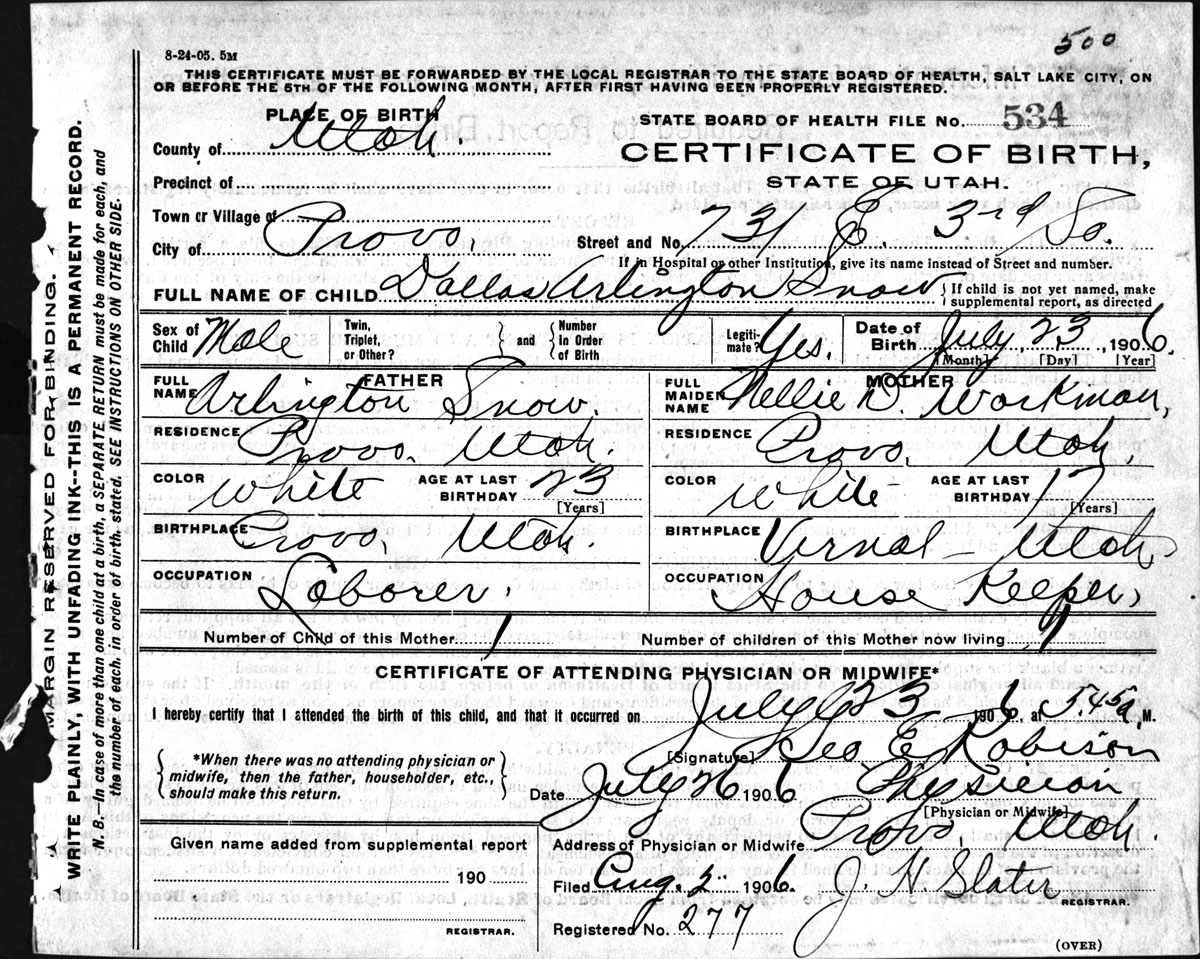 500
8-24-05. 5M
THIS CERTIFICATE MUST BE FORWARDED BY THE LOCAL REGISTRAR TO THE STATE BOARD OF HEALTH, SALT LAKE CITY, ON
OR BEFORE THE 5TH OF THE FOLLOWING MONTH, AFTER FIRST HAVING BEEN PROPERLY REGISTERED.
PLACE OF BIRTH
STATE BOARD OF HEALTH FILE No. 534
County of Utah.
CERTIFICATE OF BIRTH,
STATE OF UTAH.
Precinct of
Town or Village of
City of Provo,
Street and No. 731 E. 3rd So.
If in Hospital or other Institution, give its name instead of Street and number.
FULL NAME OF CHILD Dallas Arlington Snow { If child is not yet named, make supplemental report, as directed
Sex of Child Male Twin, Triplet, or Other? } and { Number In Order of Birth Legitimate? Yes. Date of Birth July 23, 1906.
[Month] [Day] [Year]
FATHER
FULL NAME Arlington Snow.
RESIDENCE Provo, Utah.
COLOR White AGE AT LAST BIRTHDAY 23
[Years]
BIRTHPLACE Provo, Utah.
OCCUPATION Laborer.
MOTHER
FULL MAIDEN NAME Nellie D. Workman,
RESIDENCE Provo, Utah,
COLOR White AGE AT LAST BIRTHDAY 17
[Years]
BIRTHPLACE Vernal - Utah,
OCCUPATION House Keeper,
Number of Child of this Mother 1 Number of children of this Mother now living 1
CERTIFICATE OF ATTENDING PHYSICIAN OR MIDWIFE*
I hereby certify that I attended the birth of this child, and that it occurred on July 23, 1906, at 5.45a M.
{ *When there was no attending physician or
midwife, then the father, householder, etc.,
should make this return. }
[Signature] Geo E. Robison
Date July 26 1906 Physician
[Physician or Midwife]
Given name added from supplemental report
190
REGISTRAR.
Address of Physician or Midwife Provo, Utah.
Filed Aug. 2, 1906. J. N. Slater
REGISTRAR.
Registered No. 277
(OVER)
MARGIN RESERVED FOR BINDING.
WRITE PLAINLY, WITH UNFADING INK--THIS IS A PERMANENT RECORD.
N. B. In case of more than one child at a birth, a SEPARATE RETURN must be made for each, and
the number of each, in order of birth, stated. SEE INSTRUCTIONS ON OTHER SIDE.